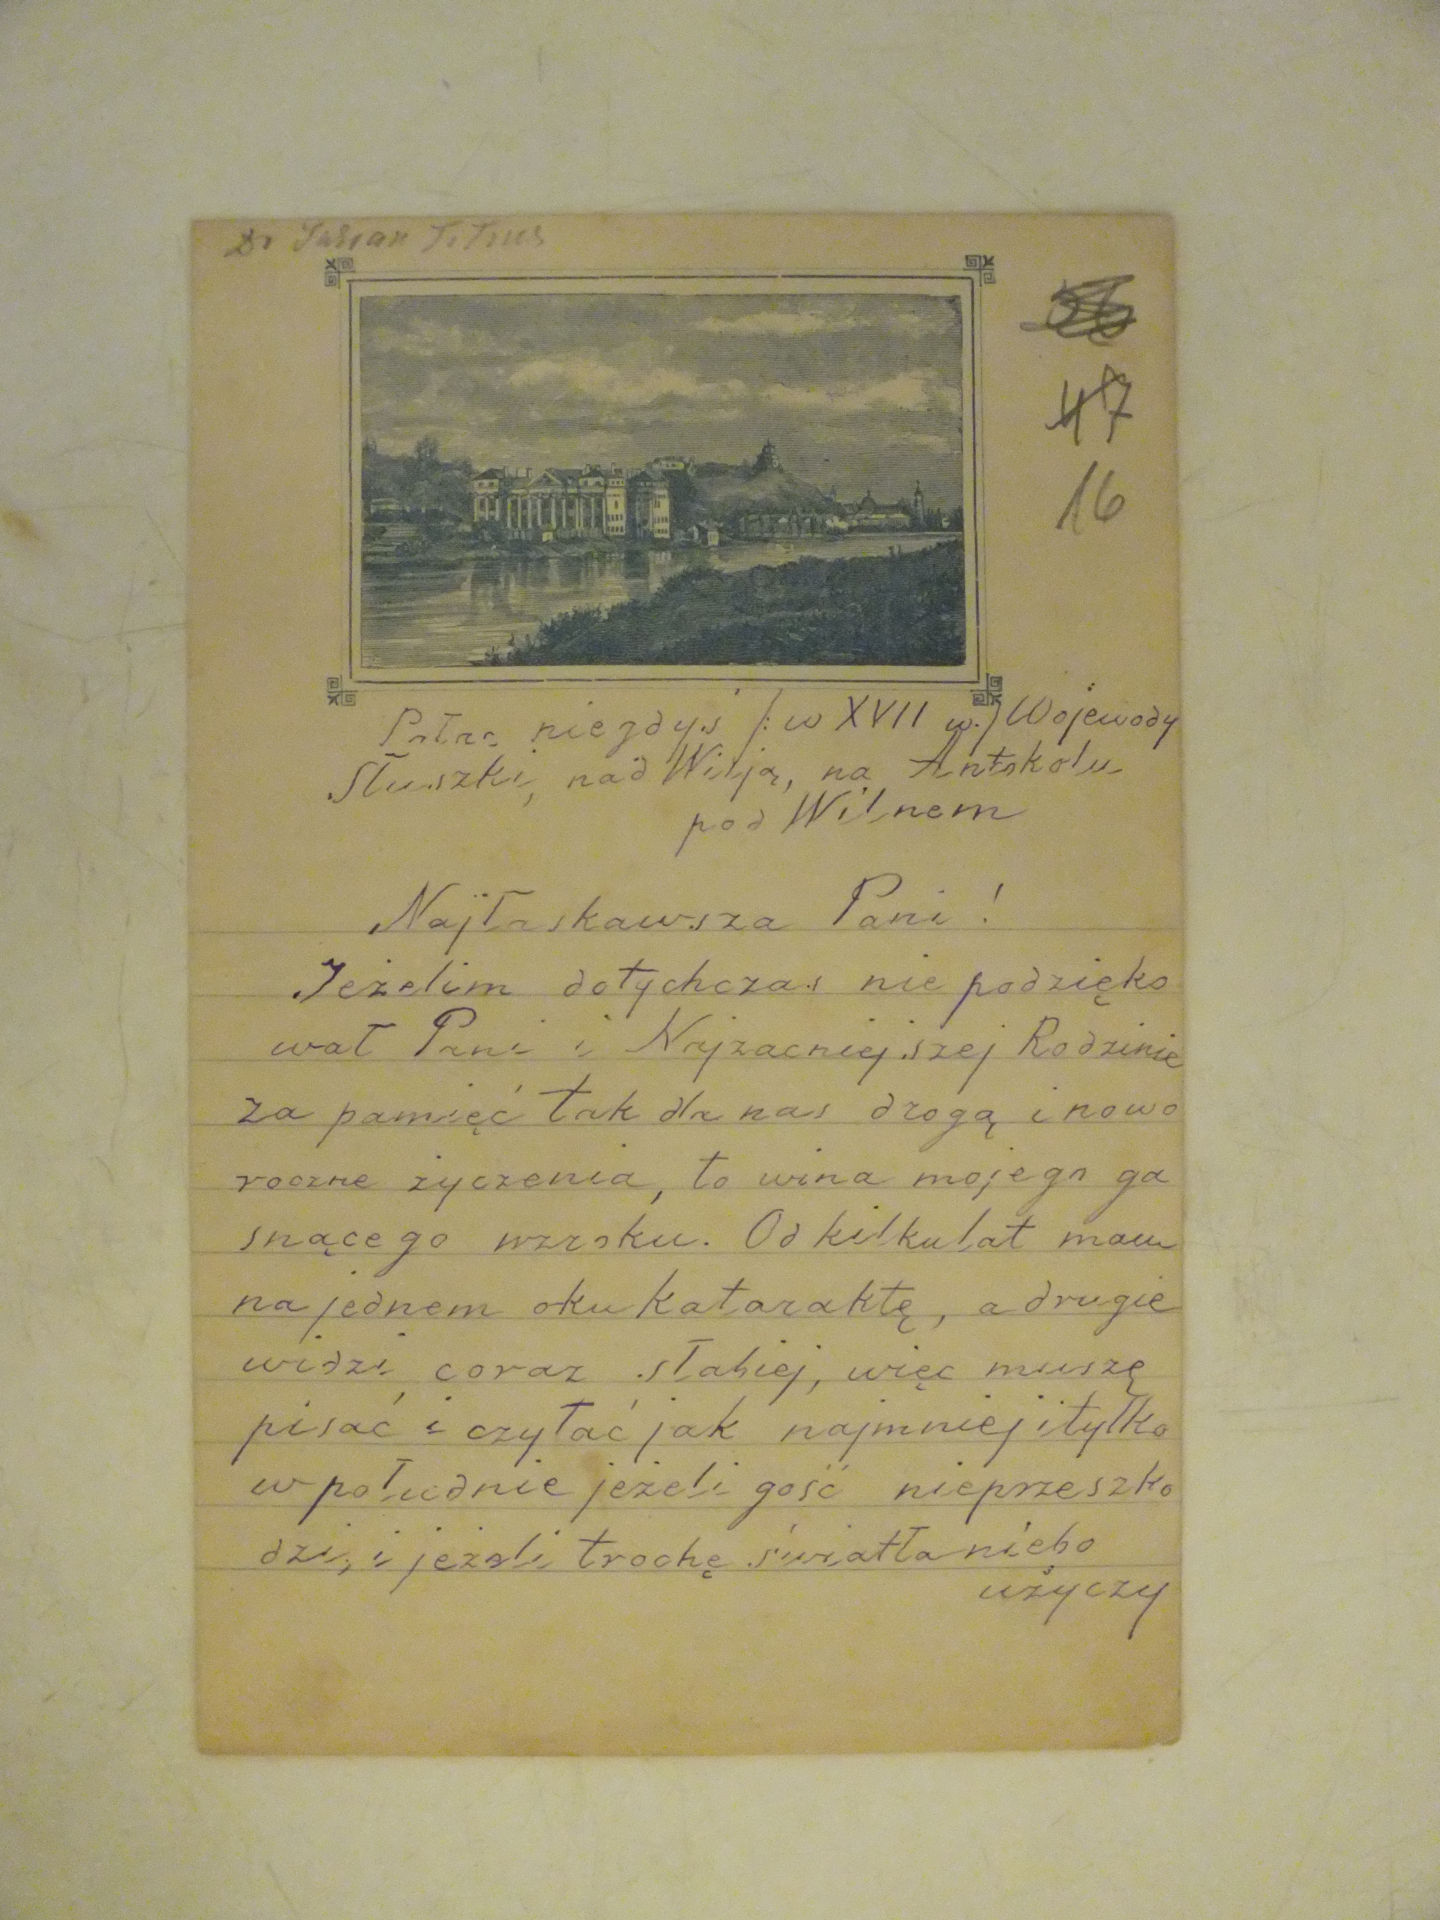 Dr Julian Titius
56
47
16
Pałac niegdyś /: w XVII w.) Wojewody
Słuszki, nad Wilją, na Antokolu
pod Wilnem
Najłaskawsza Pani!
Jeżelim dotychczas nie podzięko
wał Pani i Najzacniejszej Rodzinie
za pamięć tak dla nas drogą i nowo
roczne życzenia, to wina mojego ga
snącego wzroku. Od kilku lat mam
na jednem oku kataraktę, a drugie
widzi coraz słabiej, więc muszę
pisać i czytać jak najmniej i tylko
w południe jeżeli gość nieprzeszko
dzi, i jeżeli trochę światła niebo
użyczy